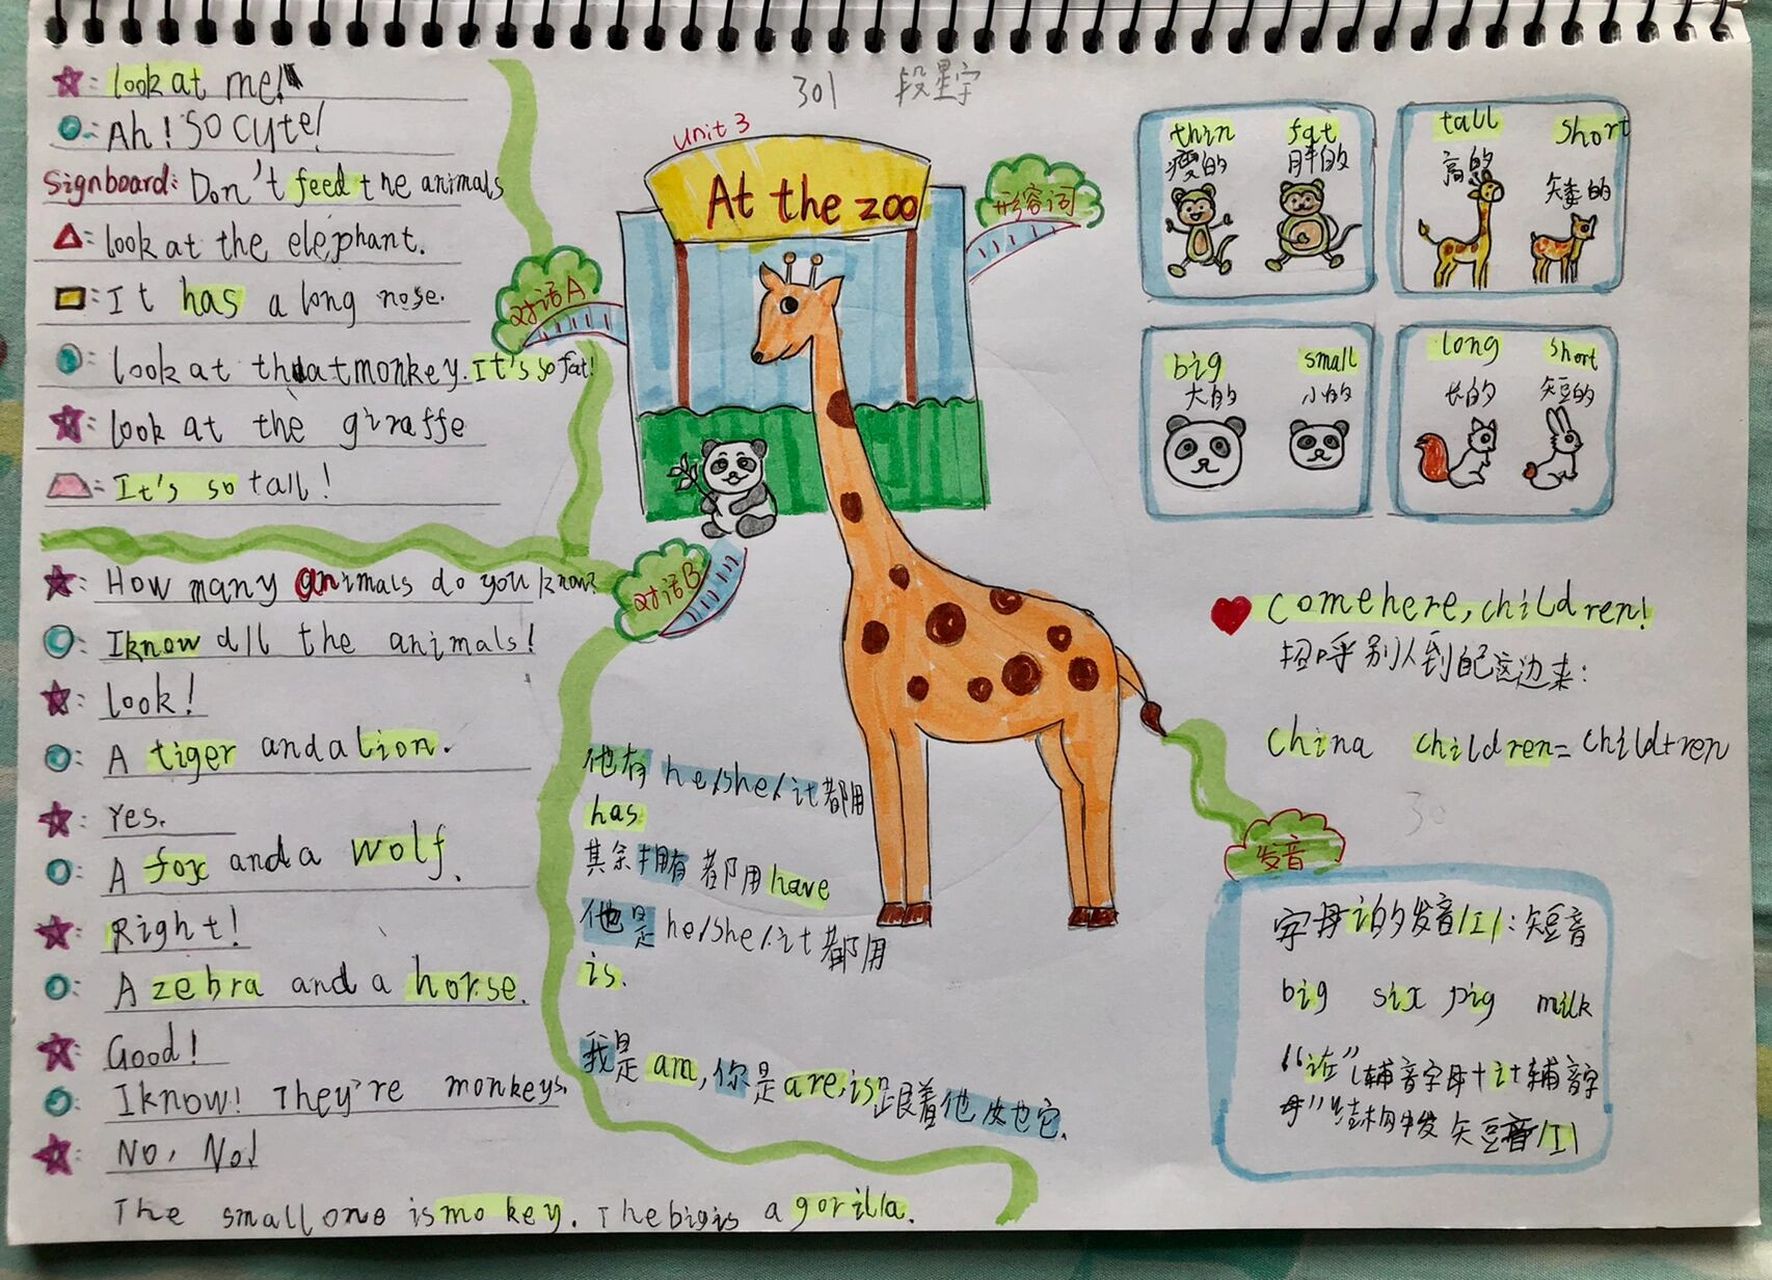 301 段星宇
unit 3
At the zoo
look at me!
Ah! so cute!
Signboard: Don't feed the animals
look at the elephant.
It has a long nose.
look at that monkey. It's so fat!
look at the giraffe
It's so tall!
对话A
How many animals do you know?
I know all the animals!
look!
A tiger and a lion.
Yes.
A fox and a wolf.
Right!
A zebra and a horse.
Good!
I know! They're monkeys.
No, No!
The small one is mo key. The big is a gorilla.
对话B
他有 he/she/it 都用
has
其余拥有 都用 have
他是 he/she/it 都用
is.
我是 am, 你是 are, is 跟着他她它.
形容词
thin fat
瘦的 胖的
tall short
高的 矮的
big small
大的 小的
long short
长的 短的
Come here, children!
招呼别人到自己这边来:
China children = child+ren
发音
字母 i 的发音 /I/: 短音
big six pig milk
“ (辅音字母 + i + 辅音字
母)” 结构中发短音 /I/